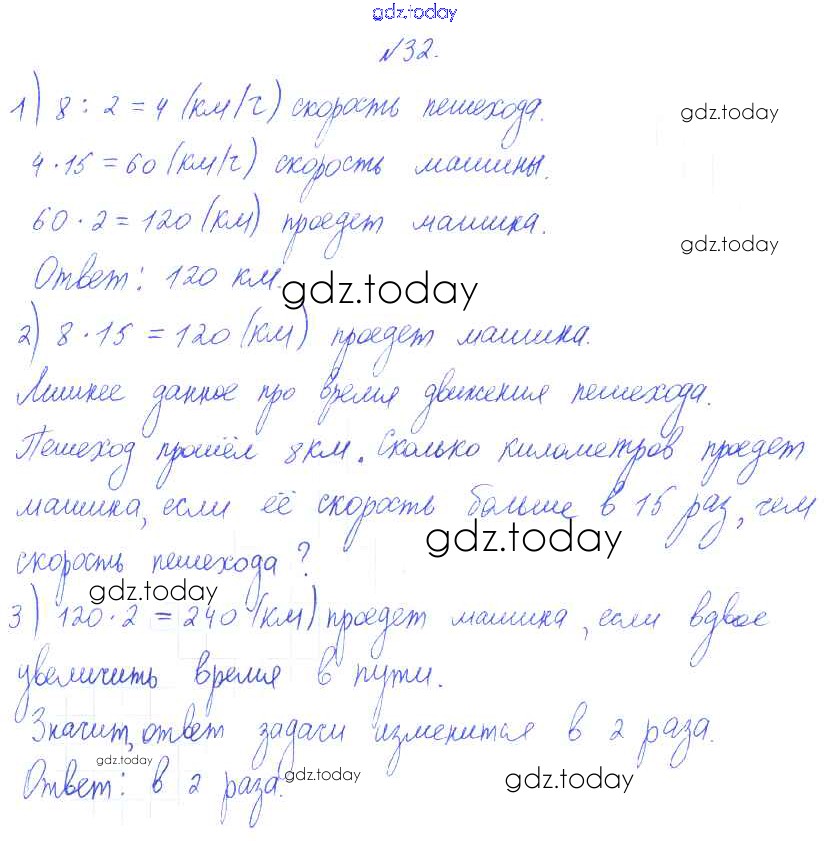 gdz.today
№32.
1) 8 : 2 = 4 (км/ч) скорость пешехода.
gdz.today
4 · 15 = 60 (км/ч) скорость машины.
60 · 2 = 120 (км) проедет машина.
gdz.today
Ответ: 120 км.
gdz.today
2) 8 · 15 = 120 (км) проедет машина.
Лишнее данное про время движения пешехода.
Пешеход прошёл 8 км. Сколько километров проедет
машина, если её скорость больше в 15 раз, чем
gdz.today
скорость пешехода?
gdz.today
3) 120 · 2 = 240 (км) проедет машина, если вдвое
увеличить время в пути.
Значит, ответ задачи изменится в 2 раза.
gdz.today
Ответ: в 2 раза.
gdz.today
gdz.today